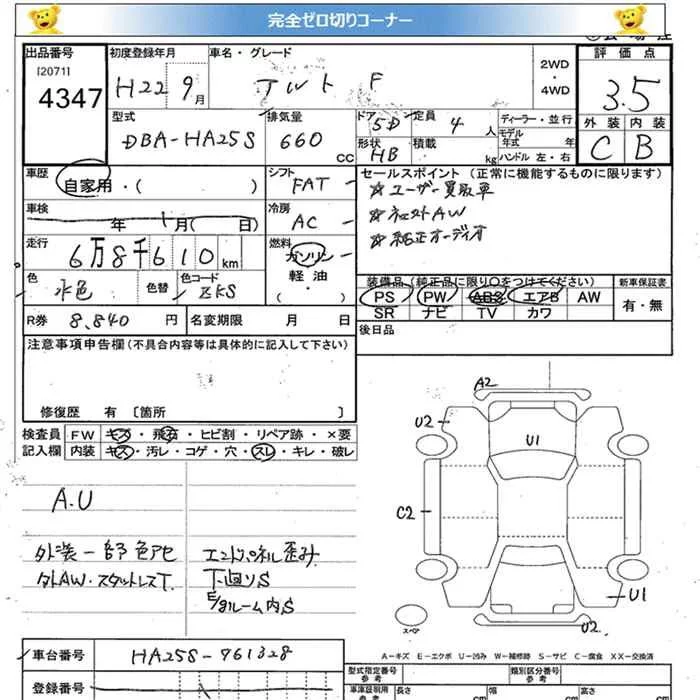 完全ゼロ切りコーナー
出品番号
[2071]
4347
初度登録年月
H22 9月
車名・グレード
アルト F
2WD
・
4WD
評価点
3.5
外装 内装
C B
型式
DBA-HA25S
排気量
660
CC
ドア 5D
形状 HB
定員 4 人
積載 kg
ディーラー・並行
モデル
年式 年
ハンドル 左・右
車歴
自家用・( )
シフト
FAT
車検
年 月( 日)
冷房
AC
走行
6万8千610 km
燃料
ガソリン
軽油
( ・ )
色
水色
色替
色コード
ZKS
R券 8,840 円
名変期限 月 日
セールスポイント (正常に機能するものに限ります)
☆ユーザー買取車
☆社外AW
☆純正オーディオ
装備品 (純正品に限り○をつけてください)
PS PW ABS エアB AW
SR ナビ TV カワ
新車保証書
有・無
後日品
注意事項申告欄(不具合内容等は具体的に記入して下さい)
修復歴 有 〔箇所 〕
検査員
記入欄
FW キズ・飛石・ヒビ割・リペア跡・×要
内装 キズ・汚レ・コゲ・穴・スレ・キレ・破レ
A.U
外装一部色アセ
外AW・スタットレスT.
エンドパネル歪み
下廻りS
E/gルーム内S
A2
U2
U1
C2
U1
U2
スペア
A−キズ E−エクボ U−凹み W−補修跡 S−サビ C−腐食 XX−交換済
車台番号 HA25S-961328
登録番号
型式指定番号
類別区分番号
車庫証明用
参考
長さ cm
幅 cm
高さ cm